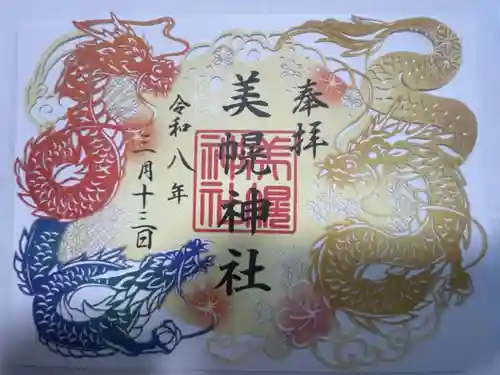 奉拝
美幌神社
美幌
神社
令和八年
二月十三日